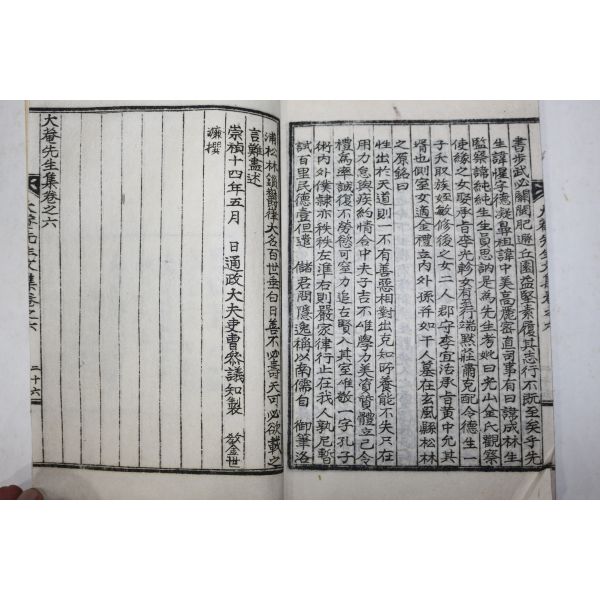 書步武必關關肥遯丘園益堅素履其志行不旣至矣乎先
生諱惺字德凝鼻祖諱中美高麗密直司事有曰諱成林生
監察諱純純生生員思訥是爲先考妣曰光山金氏觀察
使緣之女娶承旨李光軫女有至行端默莊肅克配令德生一
子夭取族姪敏修後之女二人郡守李宜活承旨黃中允其
壻也側室女適全禮立內外孫幷如干人墓在玄風縣松林
之原銘曰
性出於天道則一不有善惡相對出克知所養能不失只在
用力怠與疾約情合中夫子吉不雄學力美資質體立己令
禮爲率誠復不勞慾可窒力追古賢入其室雄敬一字孔子
術內外僕隸亦秩秩左準右則嚴家律行止在我人孰尼暫
試百里民德壹但遣 儲君問隱逸稱以南儒自 御筆洛
浦松林鎖鬱 大名百世垂白日善不必壽天可必欲載之
言難盡述
崇禎十四年五月 日通政大夫吏曹參議知製 敎金世
濂撰
大菴先生集卷之六
大菴先生文集卷之六
二十六